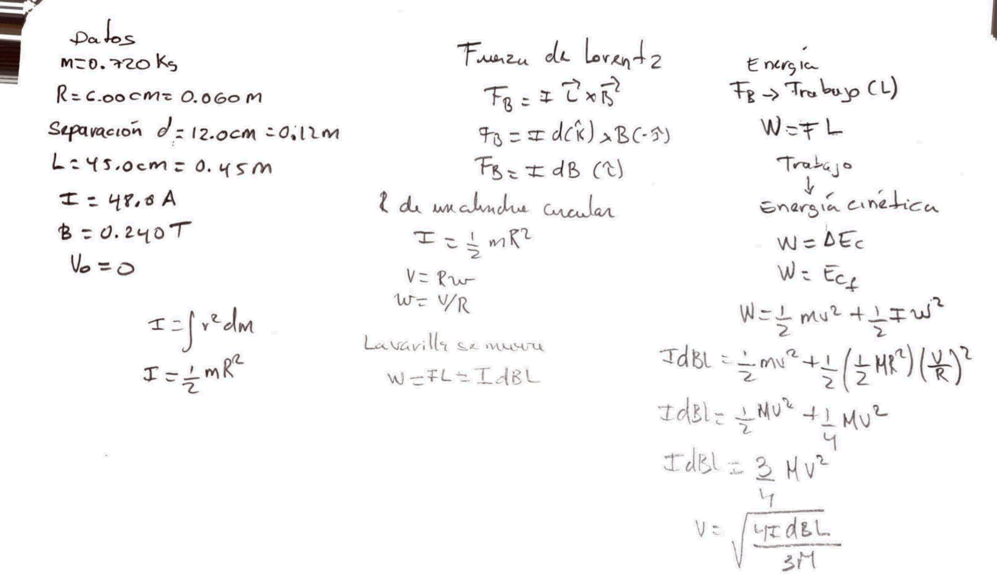 Datos
M=0.720 Kg
R=6.00cm=0.060m
Separación d=12.0cm=0.12m
L=45.0cm=0.45m
I=48.0A
B=0.240T
V₀=0
I=∫r²dm
I=½mR²
Fuerza de Lorentz
F_B = I L⃗×B⃗
F_B = I d(k̂)×B(-ĵ)
F_B = I dB (î)
I de un cilindro circular
I = ½ mR²
V= Rw
w= V/R
La varilla se mueve
W=FL=IdBL
Energía
F_B → Trabajo (L)
W=FL
Trabajo
↓
Energía cinética
W=ΔEc
W= Ec_f
W=½ mv² + ½ Iw²
IdBL = ½mv² + ½(½MR²)(V/R)²
IdBL = ½Mv² + ¼Mv²
IdBL = 3/4 Mv²
V= √(4IdBL/3M)